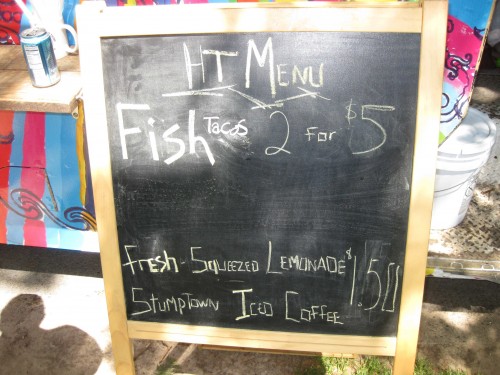 HT MENU
Fish Tacos 2 for $5
FRESH-SQUEEZED LEMONADE $1.50
STUMPTOWN ICED COFFEE